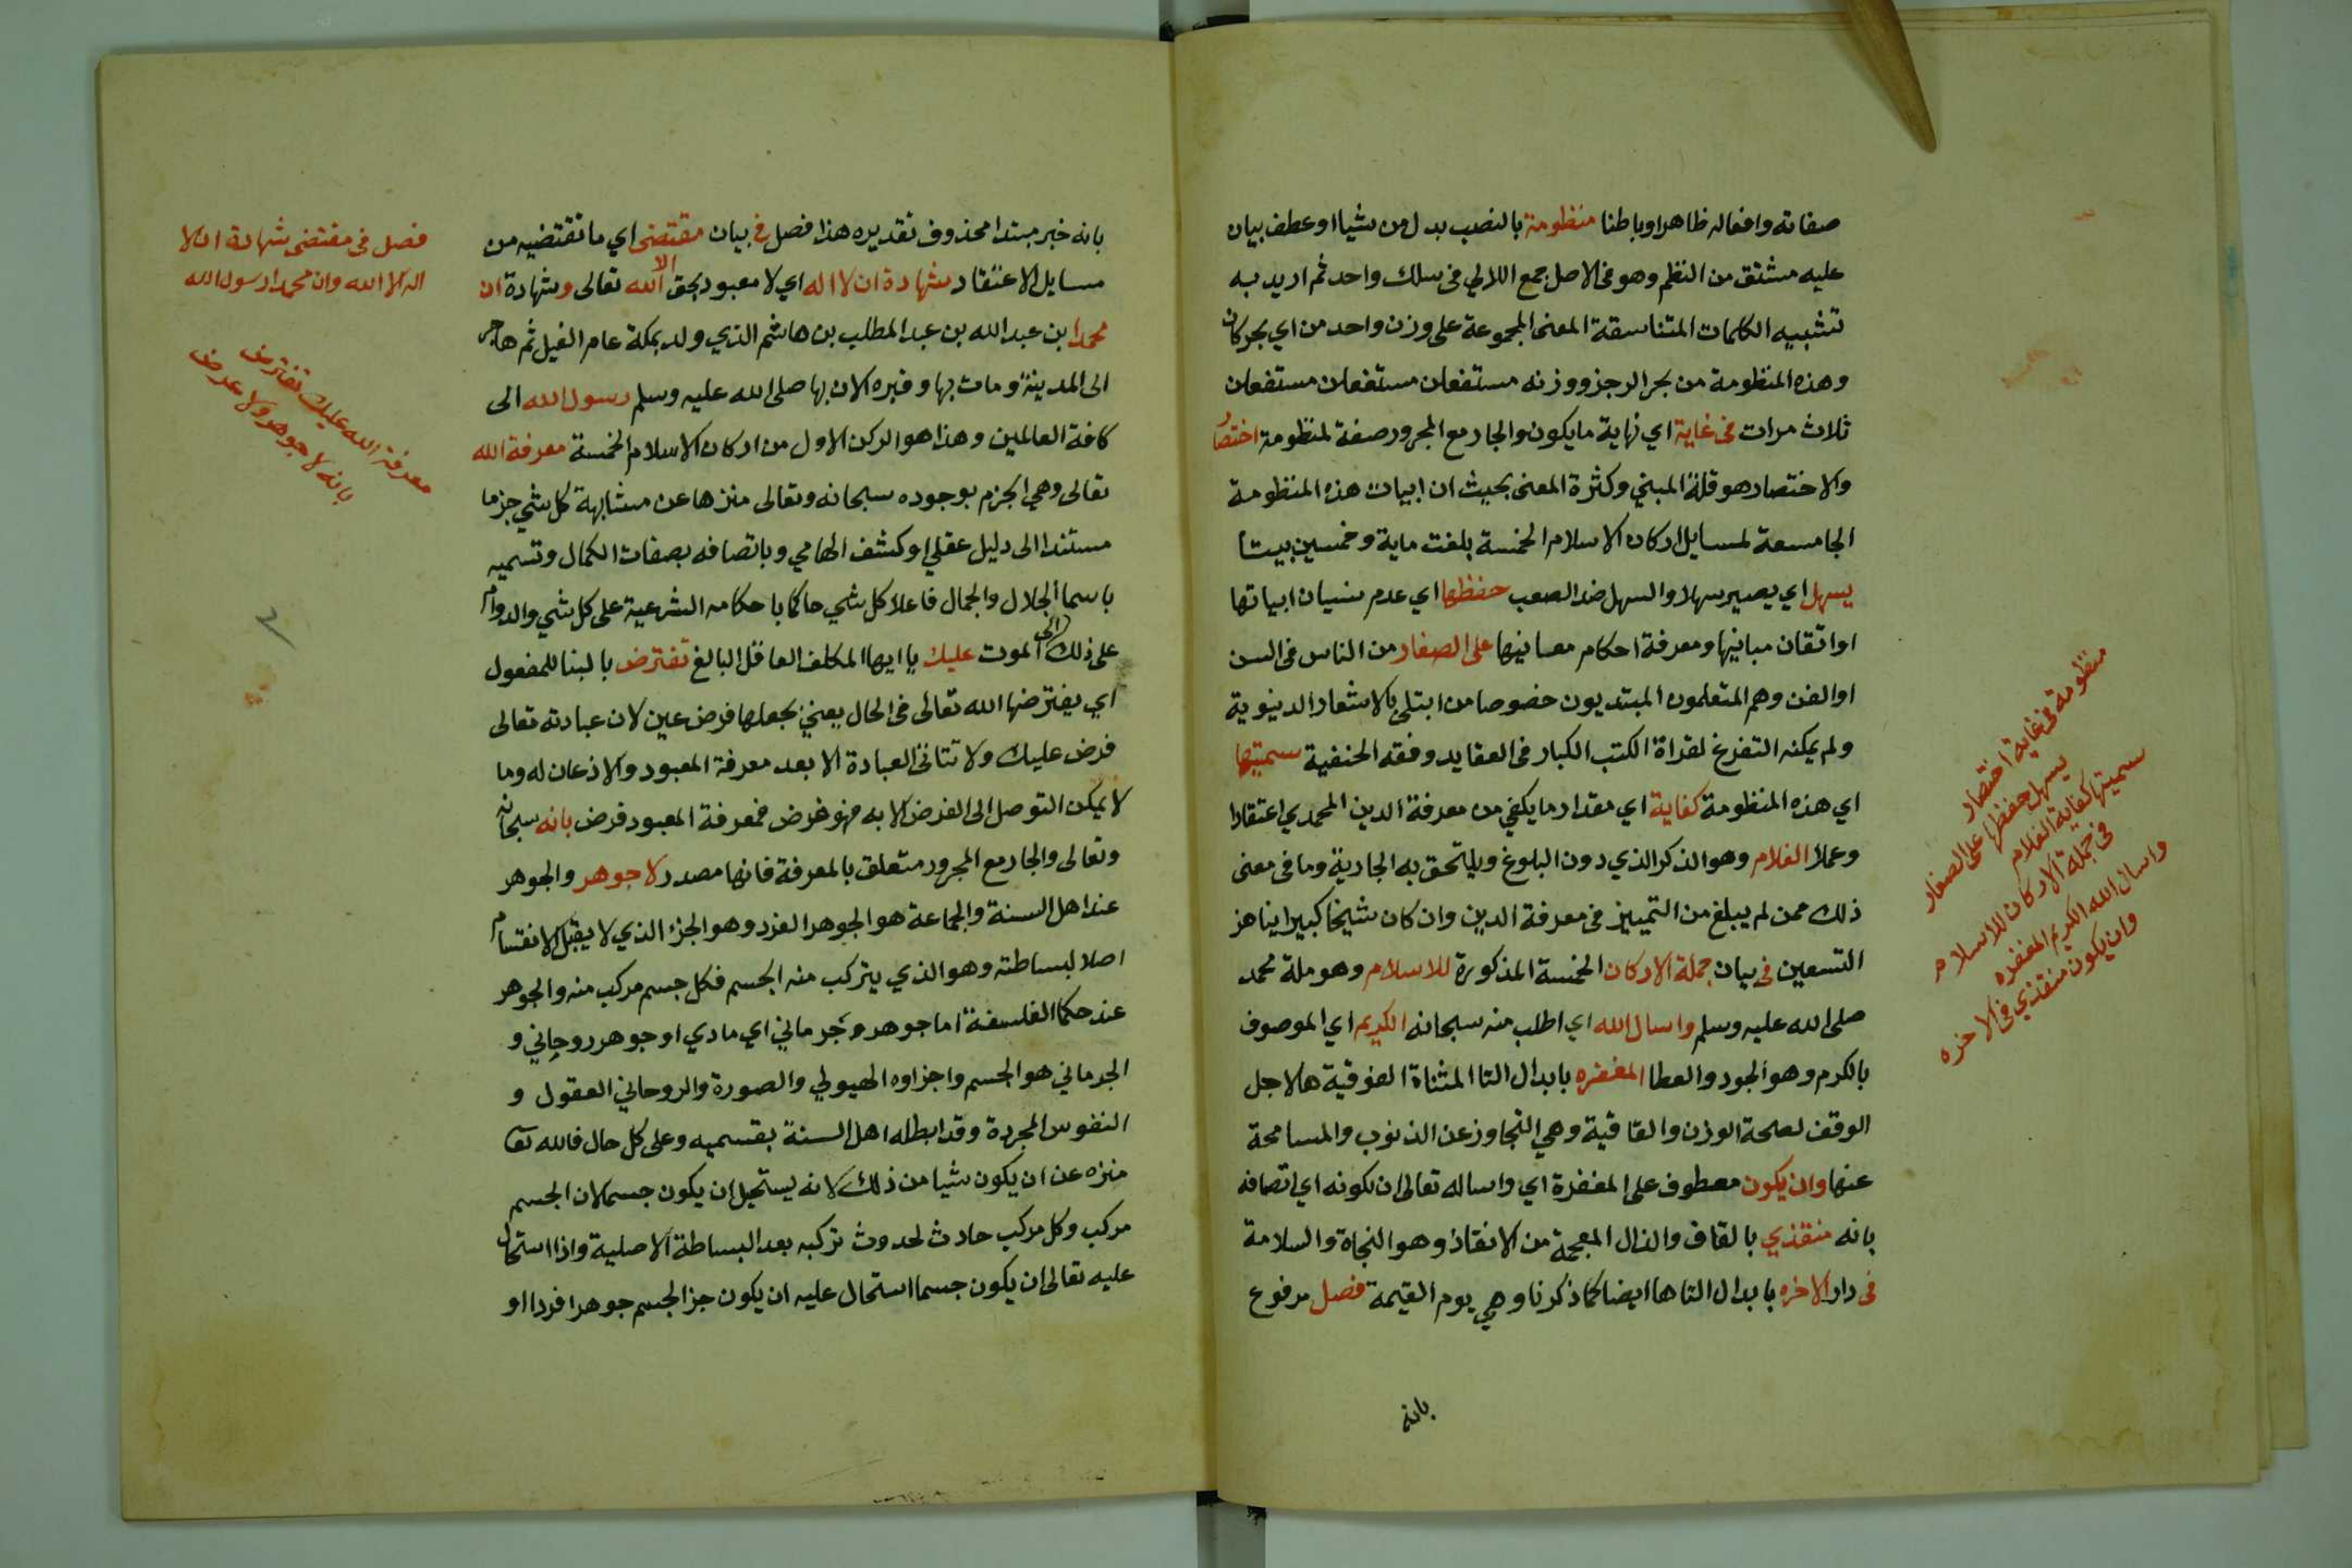 صفاته وافعاله ظاهرا وباطنا منظومة بالنصب بدل من شيا او عطف بيان
عليه مشتق من النظم وهو فى الاصل جمع اللالي فى سلك واحد ثم اريد به
تشبيه الكلمات المتناسقة المعنى المجموعة على وزن واحد من اي بحر كان
وهذه المنظومة من بحر الرجز ووزنه مستفعلن مستفعلن مستفعلن
ثلاث مرات فى غاية اي نهاية ما يكون والجار مع المجرور صفة لمنظومة اختصار
والاختصار هو قلة المبني وكثرة المعنى بحيث ان ابيات هذه المنظومة
الجامعة لمسايل اركان الاسلام الخمسة بلغت ماية وخمسين بيتا
يسهل اي يصير سهلا والسهل ضد الصعب حفظها اي عدم نسيان ابياتها
او اتقان مبانيها ومعرفة احكام معانيها على الصغار من الناس فى السن
او الفن وهم المتعلمون المبتديون خصوصا من ابتلى بالاشغال الدنيوية
ولم يمكنه التفرغ لقراة الكتب الكبار فى العقايد وفقه الحنفية سميتها
اي هذه المنظومة كفاية اي مقدار ما يكفي من معرفة الدين المحمدي اعتقادا
وعملا الغلام وهو الذكر الذي دون البلوغ ويلتحق به الجارية وما فى معنى
ذلك ممن لم يبلغ من التمييز فى معرفة الدين وان كان شيخا كبيرا يناهز
التسعين فى بيان جملة الاركان الخمسة المذكورة للاسلام وهو ملة محمد
صلى الله عليه وسلم واسال الله اي اطلب منه سبحانه الكريم اي الموصوف
بالكرم وهو الجود والعطا المغفره بابدال التا المثناة الفوقية ها لاجل
الوقف لصحة الوزن والقافية وهي التجاوز عن الذنوب والمسامحة
عنها وان يكون معطوف على المغفرة اي واساله تعالى ان يكونه اي اتصافه
بانه منقذي بالقاف والذال المعجمة من الانقاذ وهو النجاة والسلامة
فى دار الاخره بابدال التا ها ايضا كما ذكرنا وهي يوم القيمة فصل مرفوع
بانه
منظومة فى غاية اختصار
يسهل حفظها على الصغار
سميتها كفاية الغلام
فى جملة الاركان للاسلام
واسال الله الكريم المغفره
وان يكون منقذي فى الاخره
بانه خبر مبتدا محذوف تقديره هذا فصل في بيان مقتضى اي ما تقتضيه من
مسايل الاعتقاد شهادة ان لا اله اي لا معبود بحق الا الله تعالى وشهادة ان
محمدا ابن عبد الله بن عبد المطلب بن هاشم الذي ولد بمكة عام الفيل ثم هاجر
الى المدينة ومات بها وقبره الان بها صلى الله عليه وسلم رسول الله الى
كافة العالمين وهذا هو الركن الاول من اركان الاسلام الخمسة معرفة الله
تعالى وهي الجزم بوجوده سبحانه وتعالى منزها عن مشابهة كل شي جزما
مستندا الى دليل عقلي او كشف الهامي وباتصافه بصفات الكمال وتسميه
باسما الجلال والجمال فاعلا كل شي حاكما باحكامه الشرعية على كل شي والدوام
على ذلك الى الموت عليك يا ايها المكلف العاقل البالغ تفترض بالبنا للمفعول
اي يفترضها الله تعالى فى الحال يعني يجعلها فرض عين لان عبادته تعالى
فرض عليك ولا تتاتى العبادة الا بعد معرفة المعبود والاذعان له وما
لا يمكن التوصل الى الفرض الا به فهو فرض فمعرفة المعبود فرض بانه سبحانه
وتعالى والجار مع المجرور متعلق بالمعرفة فانها مصدر لا جوهر والجوهر
عند اهل السنة والجماعة هو الجوهر الفرد وهو الجزء الذي لا يقبل الانقسام
اصلا لبساطته وهو الذي يتركب منه الجسم فكل جسم مركب منه والجوهر
عند حكما الفلسفة اما جوهر جرماني اي مادي او جوهر روحاني و
الجرماني هو الجسم واجزاوه الهيولي والصورة والروحاني العقول و
النفوس المجردة وقد ابطله اهل السنة بقسميه وعلى كل حال فالله تعا
منزه عن ان يكون شيا من ذلك لانه يستحيل ان يكون جسما لان الجسم
مركب وكل مركب حادث لحدوث تركبه بعد البساطة الاصلية واذا استحال
عليه تعالى ان يكون جسما استحال عليه ان يكون جزا لجسم جوهرا فردا او
فصل فى مقتضى شهادة ان لا
اله الا الله وان محمدا رسول الله
معرفة الله عليك تفترض
بانه لا جوهر ولا عرض